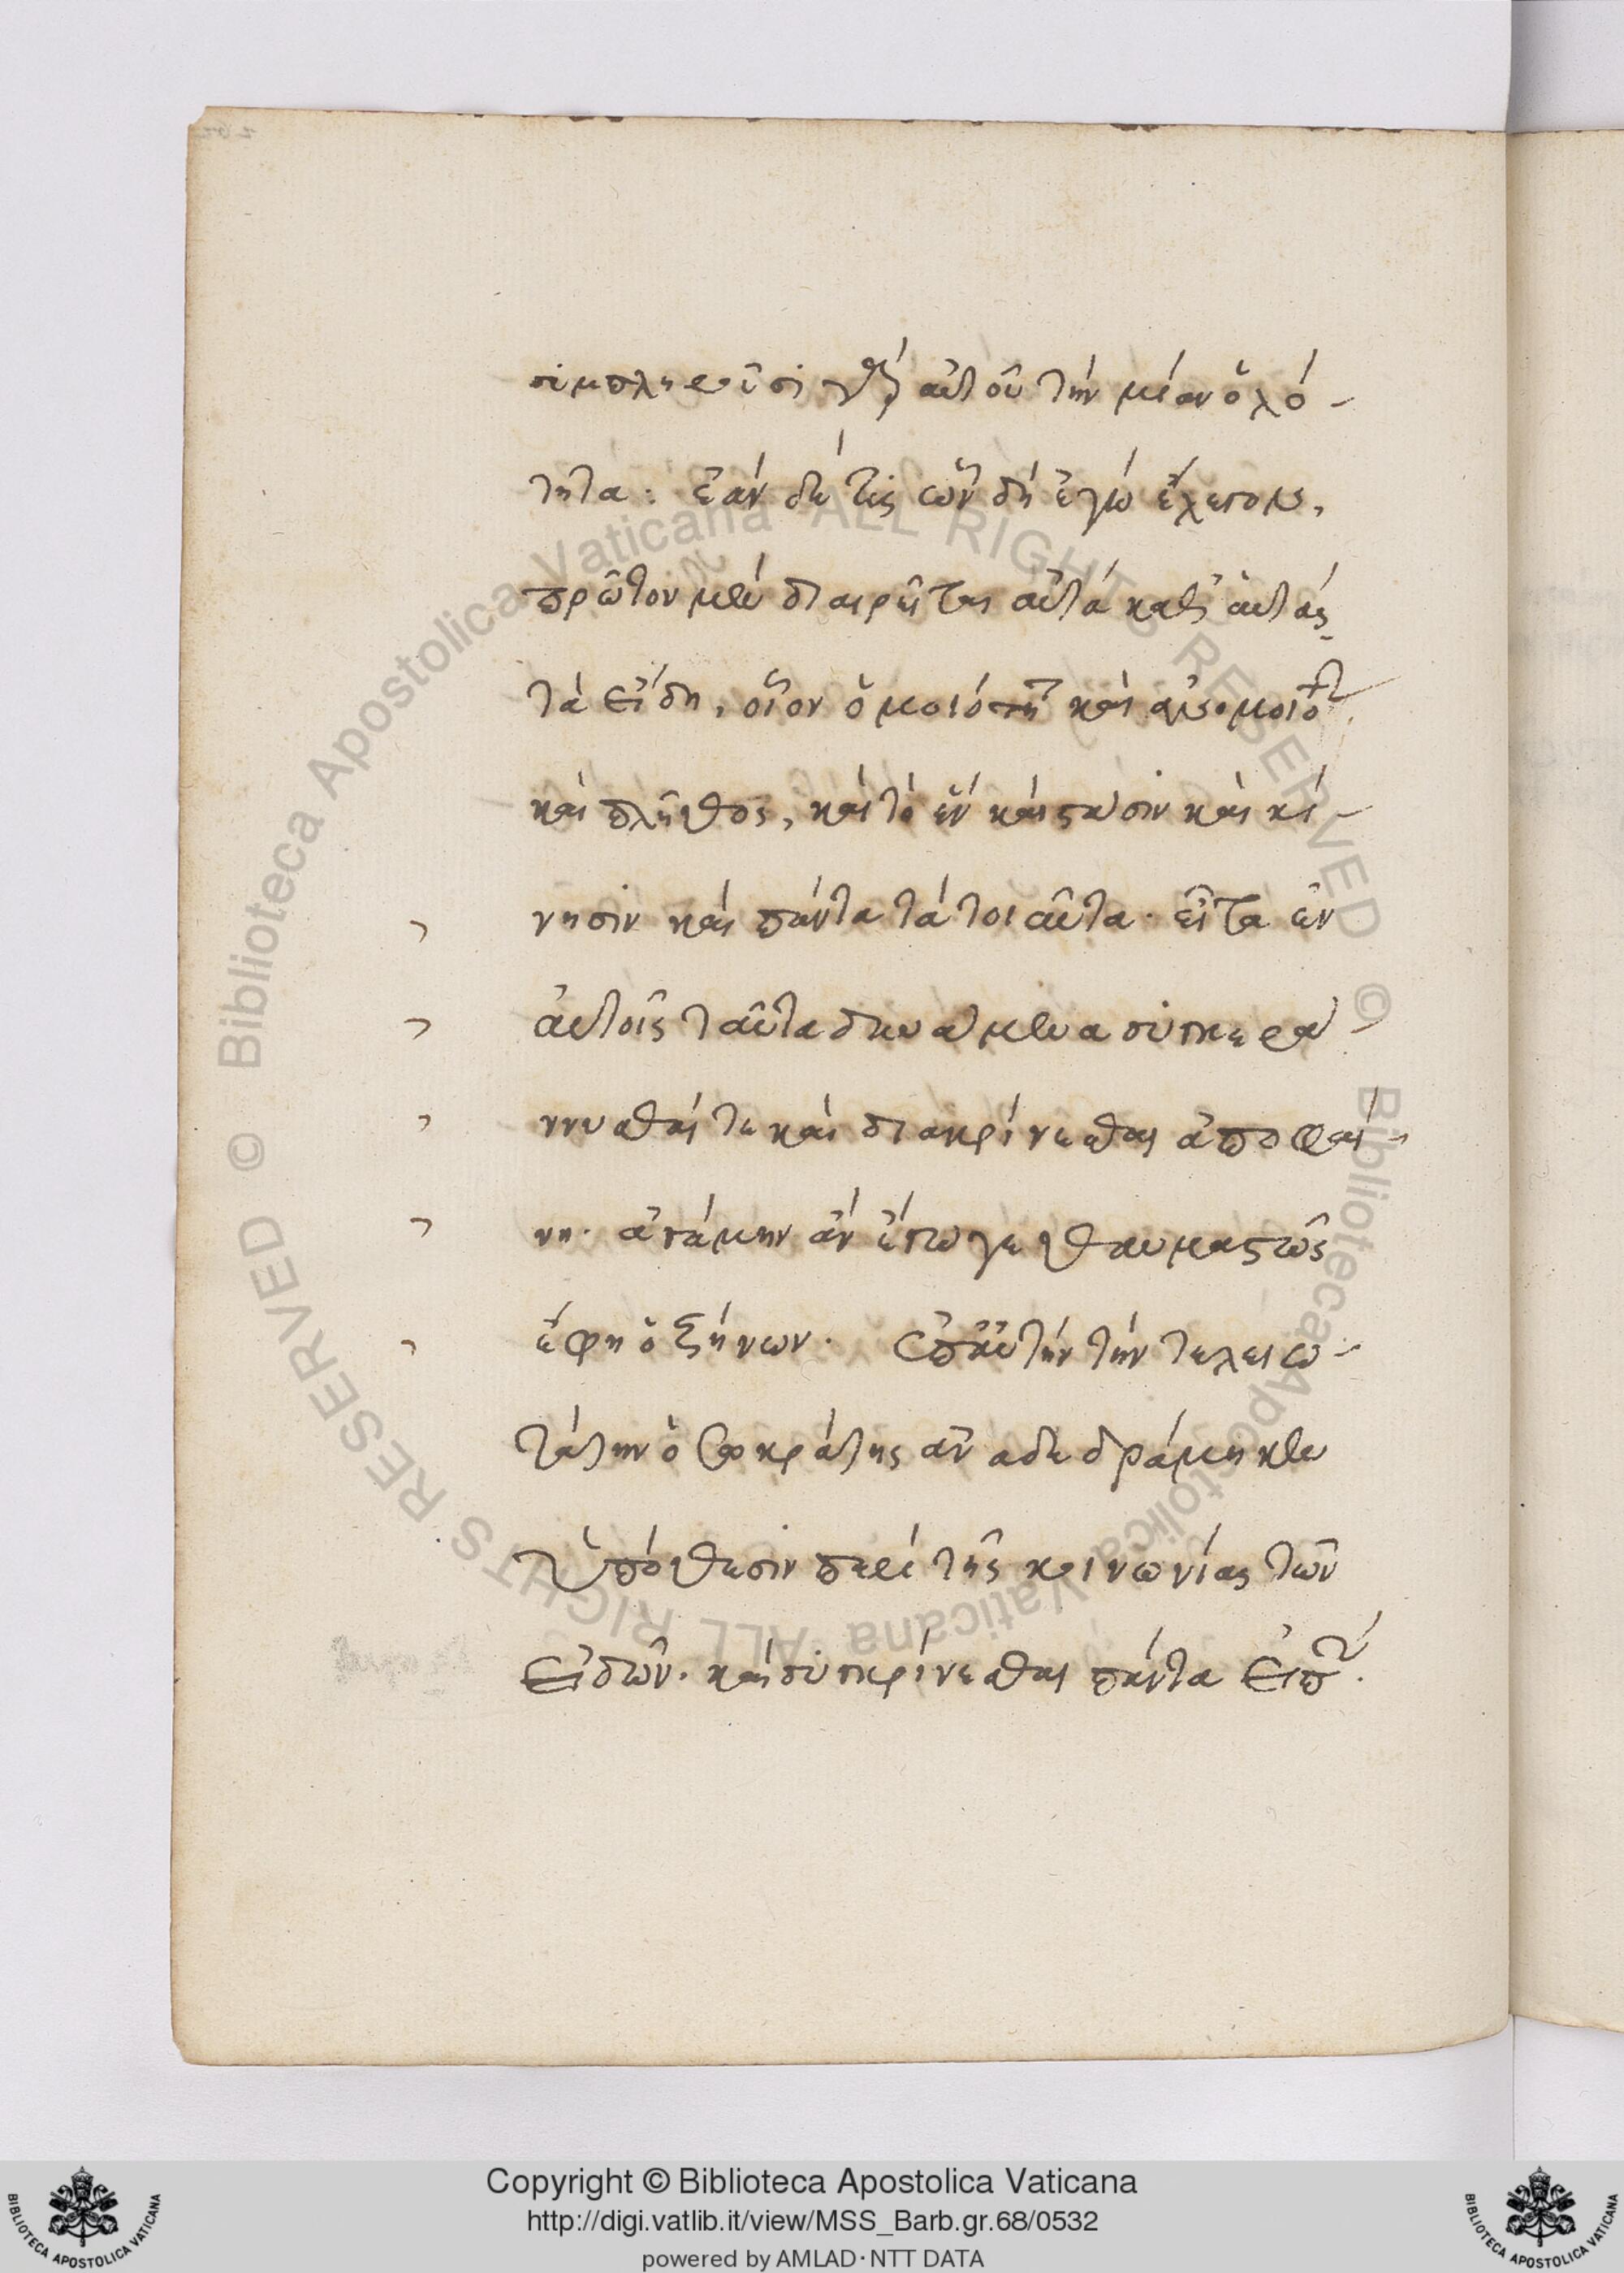 συμπληροῦσι γὰρ αὐτοῦ τὴν μίαν ὁλό-
τητα: ἐὰν δέ τις ὧν δὴ ἐγὼ ἔλεγον,
πρῶτον μὲν διαιρῆται αὐτὰ καθ' αὑτὰς
τὰ εἴδη, οἷον ὁμοιότητα καὶ ἀνομοιότητα
καὶ πλῆθος, καὶ τὸ ἓν καὶ στάσιν καὶ κί-
νησιν καὶ πάντα τὰ τοιαῦτα. εἶτα ἐν
ἑαυτοῖς ταῦτα δυνάμενα συγκερά-
ννυσθαί τε καὶ διακρίνεσθαι ἀποφαί-
νῃ. ἀγάμην ἂν ἔγωγε θαυμαστῶς
ἔφη ὁ ζήνων. ἐπ' αὐτὴν τὴν τελειω-
τάτην ὁ σωκράτης ἀναδεδράμηκεν
ὑπόθεσιν περὶ τῆς κοινωνίας τῶν
εἰδῶν. καὶ συγκρίνεσθαι πάντα εἰπὼν.
Copyright © Biblioteca Apostolica Vaticana
http://digi.vatlib.it/view/MSS_Barb.gr.68/0532
powered by AMLAD·NTT DATA